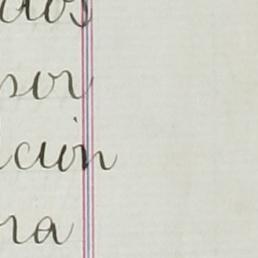 dos
sor
ción
ra